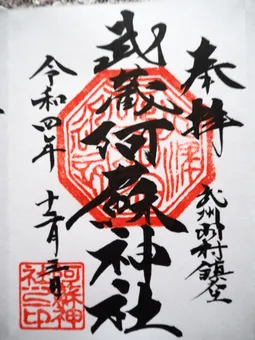 奉拝
武州羽村鎮座
武蔵阿蘇神社
令和四年
阿蘇神
社之印